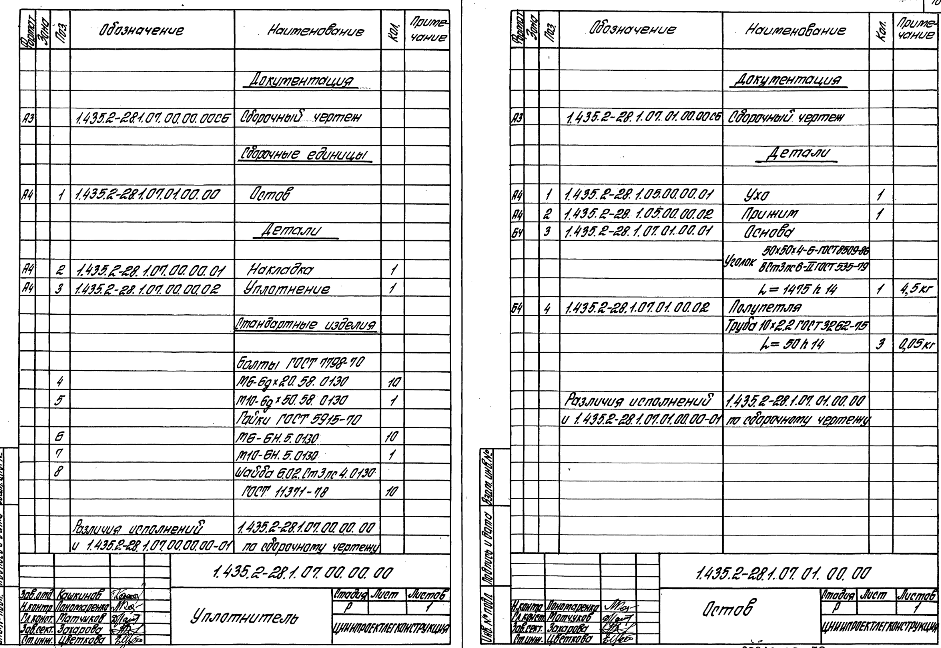 Формат Зона Поз. Обозначение Наименование Кол. Приме-
чание
Документация
А3 1.435.2-28.1.07.00.00.00СБ Сборочный чертеж
Сборочные единицы
А4 1 1.435.2-28.1.07.01.00.00 Остов
Детали
А4 2 1.435.2-28.1.07.00.00.01 Накладка 1
А4 3 1.435.2-28.1.07.00.00.02 Уплотнение 1
Стандартные изделия
Болты ГОСТ 7798-70
4 М6-6g×20.58.0130 10
5 М10-6g×50.58.0130 1
Гайки ГОСТ 5915-70
6 М6-6Н.5.0130 10
7 М10-6Н.5.0130 1
8 Шайба 6.02.Ст3пс4.0130
ГОСТ 11371-78 10
Различия исполнений 1.435.2-28.1.07.00.00.00
и 1.435.2-28.1.07.00.00.00-01 по сборочному чертежу
1.435.2-28.1.07.00.00.00
Зав.отд. Кашкинов
Н.контр. Пономаренко
Гл.конст. Матчуков
Зав.сект. Захарова
Ст.инж. Цветкова
Уплотнитель
Стадия Лист Листов
Р 1
ЦНИИПРОЕКТЛЕГКОНСТРУКЦИЯ
Формат Зона Поз. Обозначение Наименование Кол. Приме-
чание
Документация
А3 1.435.2-28.1.07.01.00.00СБ Сборочный чертеж
Детали
А4 1 1.435.2-28.1.05.00.00.01 Ухо 1
А4 2 1.435.2-28.1.05.00.00.02 Прижим 1
БЧ 3 1.435.2-28.1.07.01.00.01 Основа
Уголок 50×50×4-Б-ГОСТ 8509-86
ВСт3пс6-II ГОСТ 535-79
L=1475 h14 1 4,5кг
БЧ 4 1.435.2-28.1.07.01.00.02 Полупетля
Труба 10×2.2 ГОСТ 3262-75
L=50 h14 3 0,05кг
Различия исполнений 1.435.2-28.1.07.01.00.00
и 1.435.2-28.1.07.01.00.00-01 по сборочному чертежу
Инв.№ подл. Подпись и дата Взам.инв.№
1.435.2-28.1.07.01.00.00
Н.контр. Пономаренко
Гл.конст. Матчуков
Зав.сект. Захарова
Ст.инж. Цветкова
Остов
Стадия Лист Листов
Р 1
ЦНИИПРОЕКТЛЕГКОНСТРУКЦИЯ